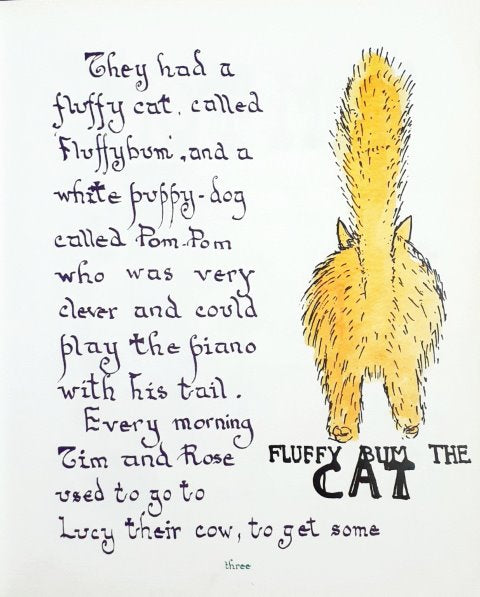 They had a
fluffy cat, called
'Fluffybum', and a
white puppy-dog
called Pom-Pom
who was very
clever and could
play the piano
with his tail.
Every morning
Tim and Rose
used to go to
Lucy their cow, to get some
FLUFFY BUM THE
CAT
three